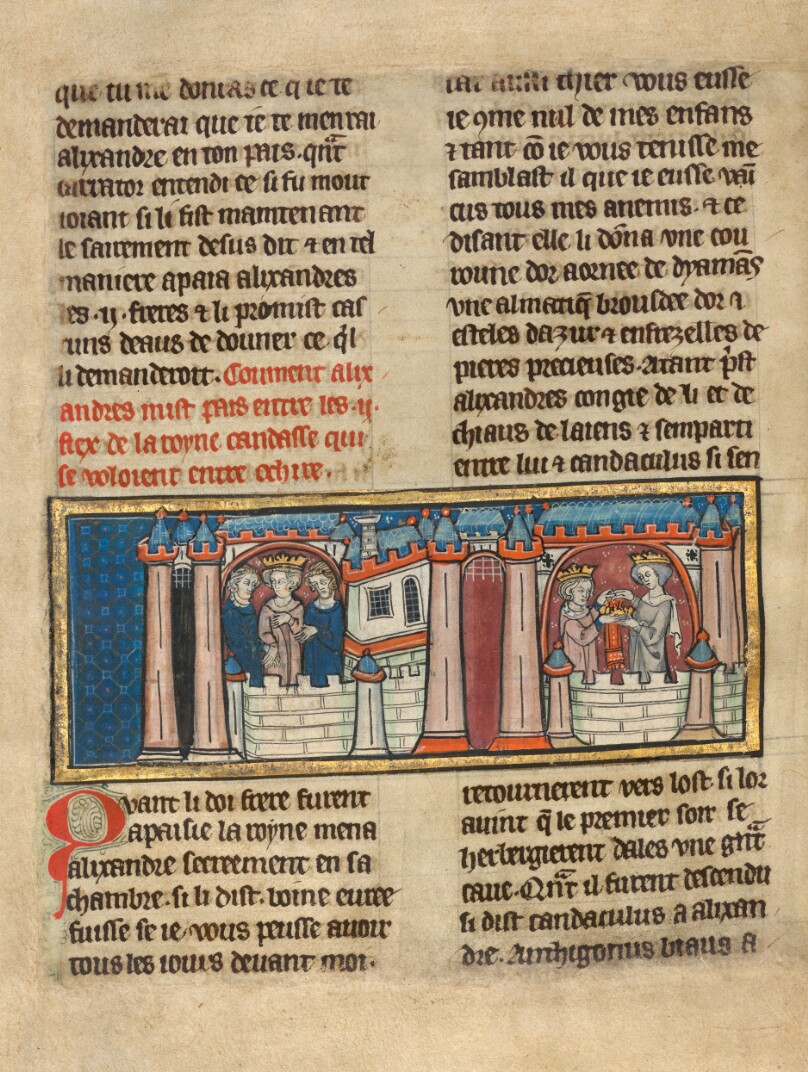 que tu me donras ce q ie te
demanderai que ie te menrai
alixandre en ton pais. qñt
carrator entendi ce si fu mout
ioiant si li fist maintenant
le sairement desus dit ⁊ en tel
maniere apaia alixandres
les .ij. freres ⁊ li promist cas
uns deaus de douner ce q̄l
li demanderoit. Coument alix
andres mist pais entre les .ij.
fiex de la royne candasse qui
se voloient entre ochire.
Quant li doi frere furent
apaisie la royne mena
alixandre secreement en sa
chambre. si li dist. boine euree
fuisse se ie vous peusse auoir
tous les iours deuant moi.
car aussi chier vous eusse
ie ꝯme nul de mes enfans
⁊ tant cō ie vous tenisse me
samblast il que ie eusse vaī
cus tous mes anemis. ⁊ ce
disant elle li dōna vne cou
roune dor aornee de dyamās
vne almatiq̄ brousdee dor ⁊
esteles dazur ⁊ enfrezelles de
pieres precieuses. Atant p̄st
alixandres congie de li et de
chiaus de laiens ⁊ semparti
entre lui ⁊ candaculus si sen
retournerent vers lost. si lor
auint q̄ le premier soir se
herbergierent dales vne gñt
caue. Qñt il furent descendu
si dist candaculus a alixan
dre. Anthigonus biaus a